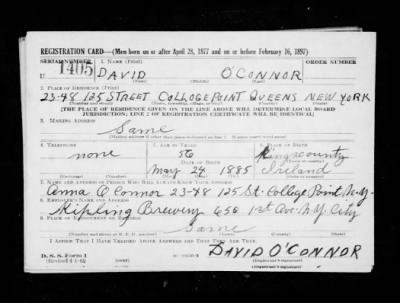 REGISTRATION CARD—(Men born on or after April 28, 1877 and on or before February 16, 1897)
SERIAL NUMBER 1. NAME (Print) ORDER NUMBER
U 1405 DAVID O'CONNOR
(First) (Middle) (Last)
2. PLACE OF RESIDENCE (Print)
23-48 125 STREET COLLOGE POINT QUEENS NEW YORK
[THE PLACE OF RESIDENCE GIVEN ON THE LINE ABOVE WILL DETERMINE LOCAL BOARD
JURISDICTION; LINE 2 OF REGISTRATION CERTIFICATE WILL BE IDENTICAL]
3. MAILING ADDRESS
Same
4. TELEPHONE 5. AGE IN YEARS 6. PLACE OF BIRTH
none 56 Kings county
DATE OF BIRTH
May 24 1885 Ireland
7. NAME AND ADDRESS OF PERSON WHO WILL ALWAYS KNOW YOUR ADDRESS
Anna O'Connor 23-48 125 St. College Point N.Y.
8. EMPLOYER'S NAME AND ADDRESS
Kipling Brewery 656 1st Ave. N.Y. City
9. PLACE OF EMPLOYMENT OR BUSINESS
Same
I AFFIRM THAT I HAVE VERIFIED ABOVE ANSWERS AND THAT THEY ARE TRUE.
D. S. S. Form 1
DAVID O'CONNOR